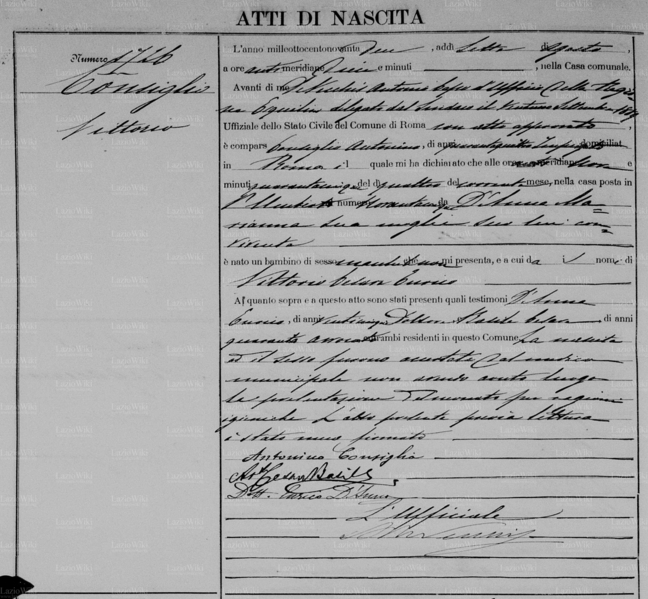 ATTI DI NASCITA
Numero 1726
Consiglio
Vittorio
L'anno milleottocentonovanta, addì sette di agosto,
a ore antimeridiane dieci e minuti, nella Casa comunale.
Avanti di me Antonio Capo d'Ufficio della
delegato del Sindaco il Settembre
Uffiziale dello Stato Civile del Comune di Roma con atto approvato
è comparso Consiglio Antonino, di anni quarantaquattro Impiegato domiciliato
in Roma il quale mi ha dichiarato che alle ore meridiane e
minuti quarantacinque del dì quattro del corrente mese, nella casa posta in
numero da D'Anna Ma-
rianna sua moglie seco lui con-
vivente
è nato un bambino di sesso maschile che non mi presenta, e a cui dà i nomi di
Vittorio Cesare Enrico
A quanto sopra e a questo atto sono stati presenti quali testimoni D'Anna
Enrico, di anni venticinque Dottore, Basile Cesare di anni
quaranta entrambi residenti in questo Comune La nascita
ed il sesso furono accertati dal medico
municipale non avendo avuto luogo
la presentazione del neonato per ragioni
igieniche L'atto presente previa lettura
è stato meco firmato
Antonino Consiglio
Cesare Basile
Dott. Enrico D'Anna
L'Ufficiale
LazioWiki